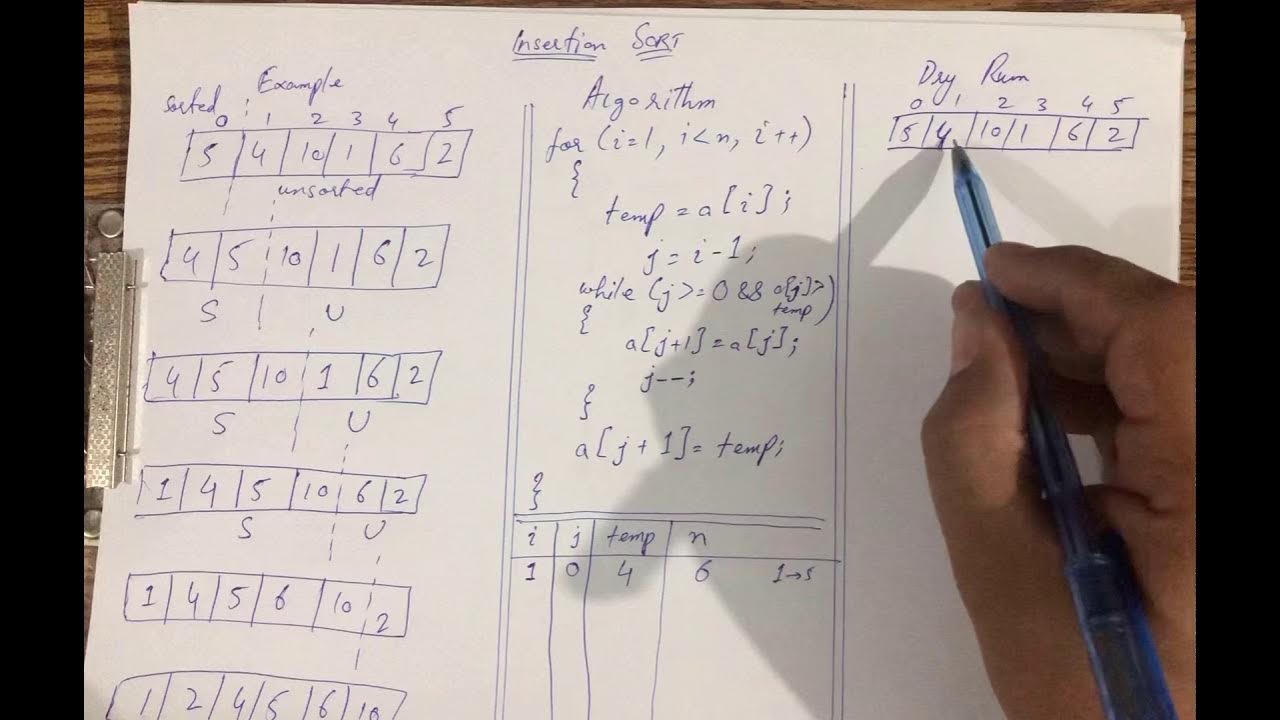 Insertion SORT
Example
sorted
0 1 2 3 4 5
5 4 10 1 6 2
unsorted
4 5 10 1 6 2
S U
4 5 10 1 6 2
S U
1 4 5 10 6 2
S U
1 4 5 6 10 2
1 2 4 5 6 10
Algorithm
for (i=1, i<n, i++)
{
temp = a[i];
j = i-1;
while (j>=0 && a[j]>
temp)
{
a[j+1] = a[j];
j--;
}
a[j+1] = temp;
}
i j temp n
1 0 4 6 1→5
Dry Run
0 1 2 3 4 5
5 4 10 1 6 2